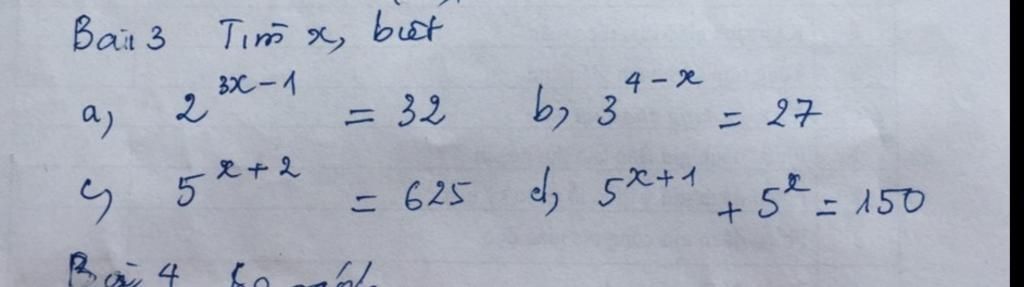 Bài 3 Tìm x, biết
a, 2^{3x-1} = 32 b, 3^{4-x} = 27
c, 5^{x+2} = 625 d, 5^{x+1} + 5^x = 150
Bài 4